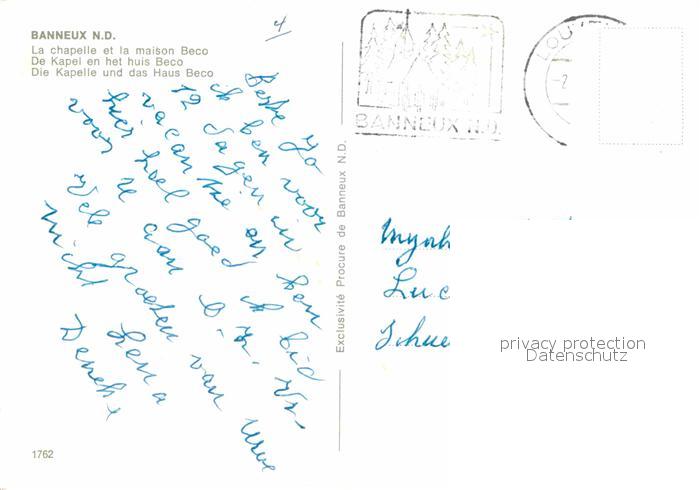 BANNEUX N.D.
La chapelle et la maison Beco
De Kapel en het huis Beco
Die Kapelle und das Haus Beco
4
Beste
ik ben voor
12 dagen in
vacantie en ben
hier heel goed ik bid
voor u aan
Vele groeten van Uwe
nicht
Lena
1762
Exclusivité Procure de Banneux N.D.
BANNEUX N.D.
LOU
-2
Luc
Schue
privacy protection
Datenschutz